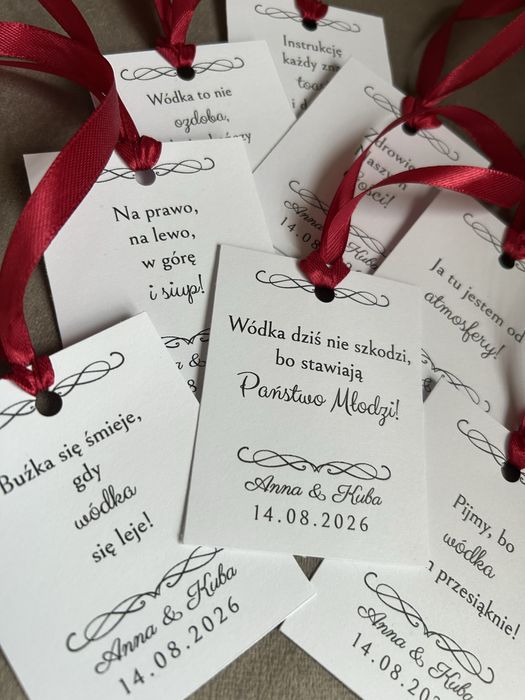 Instrukcję
każdy
Wódka to nie
ozdoba,
Zdrowie
Naszych
Gości!
Anna &
14.08.20
Na prawo,
na lewo,
w górę
i siup!
Ja tu jestem od
atmosfery!
Wódka dziś nie szkodzi,
bo stawiają
Państwo Młodzi!
Anna & Kuba
14.08.2026
Buźka się śmieje,
gdy
wódka
się leje!
Anna & Kuba
14.08.2026
Pijmy, bo
wódka
przesiąknie!
Anna & Kuba
14.08.202